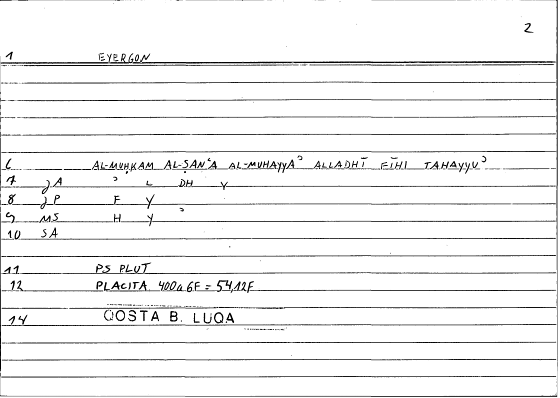 2
1 EYERGON
6 AL-MUḤKAM AL-ṢANʿA AL-MUHAYYAʾ ALLADHĪ FĪHI TAHAYYUʾ
7 ȝA ʾ L DH Y
8 ȝP F Y
9 MS H Y ʾ
10 SA
11 PS PLUT
12 PLACITA 400a6F = 54,12F
14 QOSTA B. LUQA